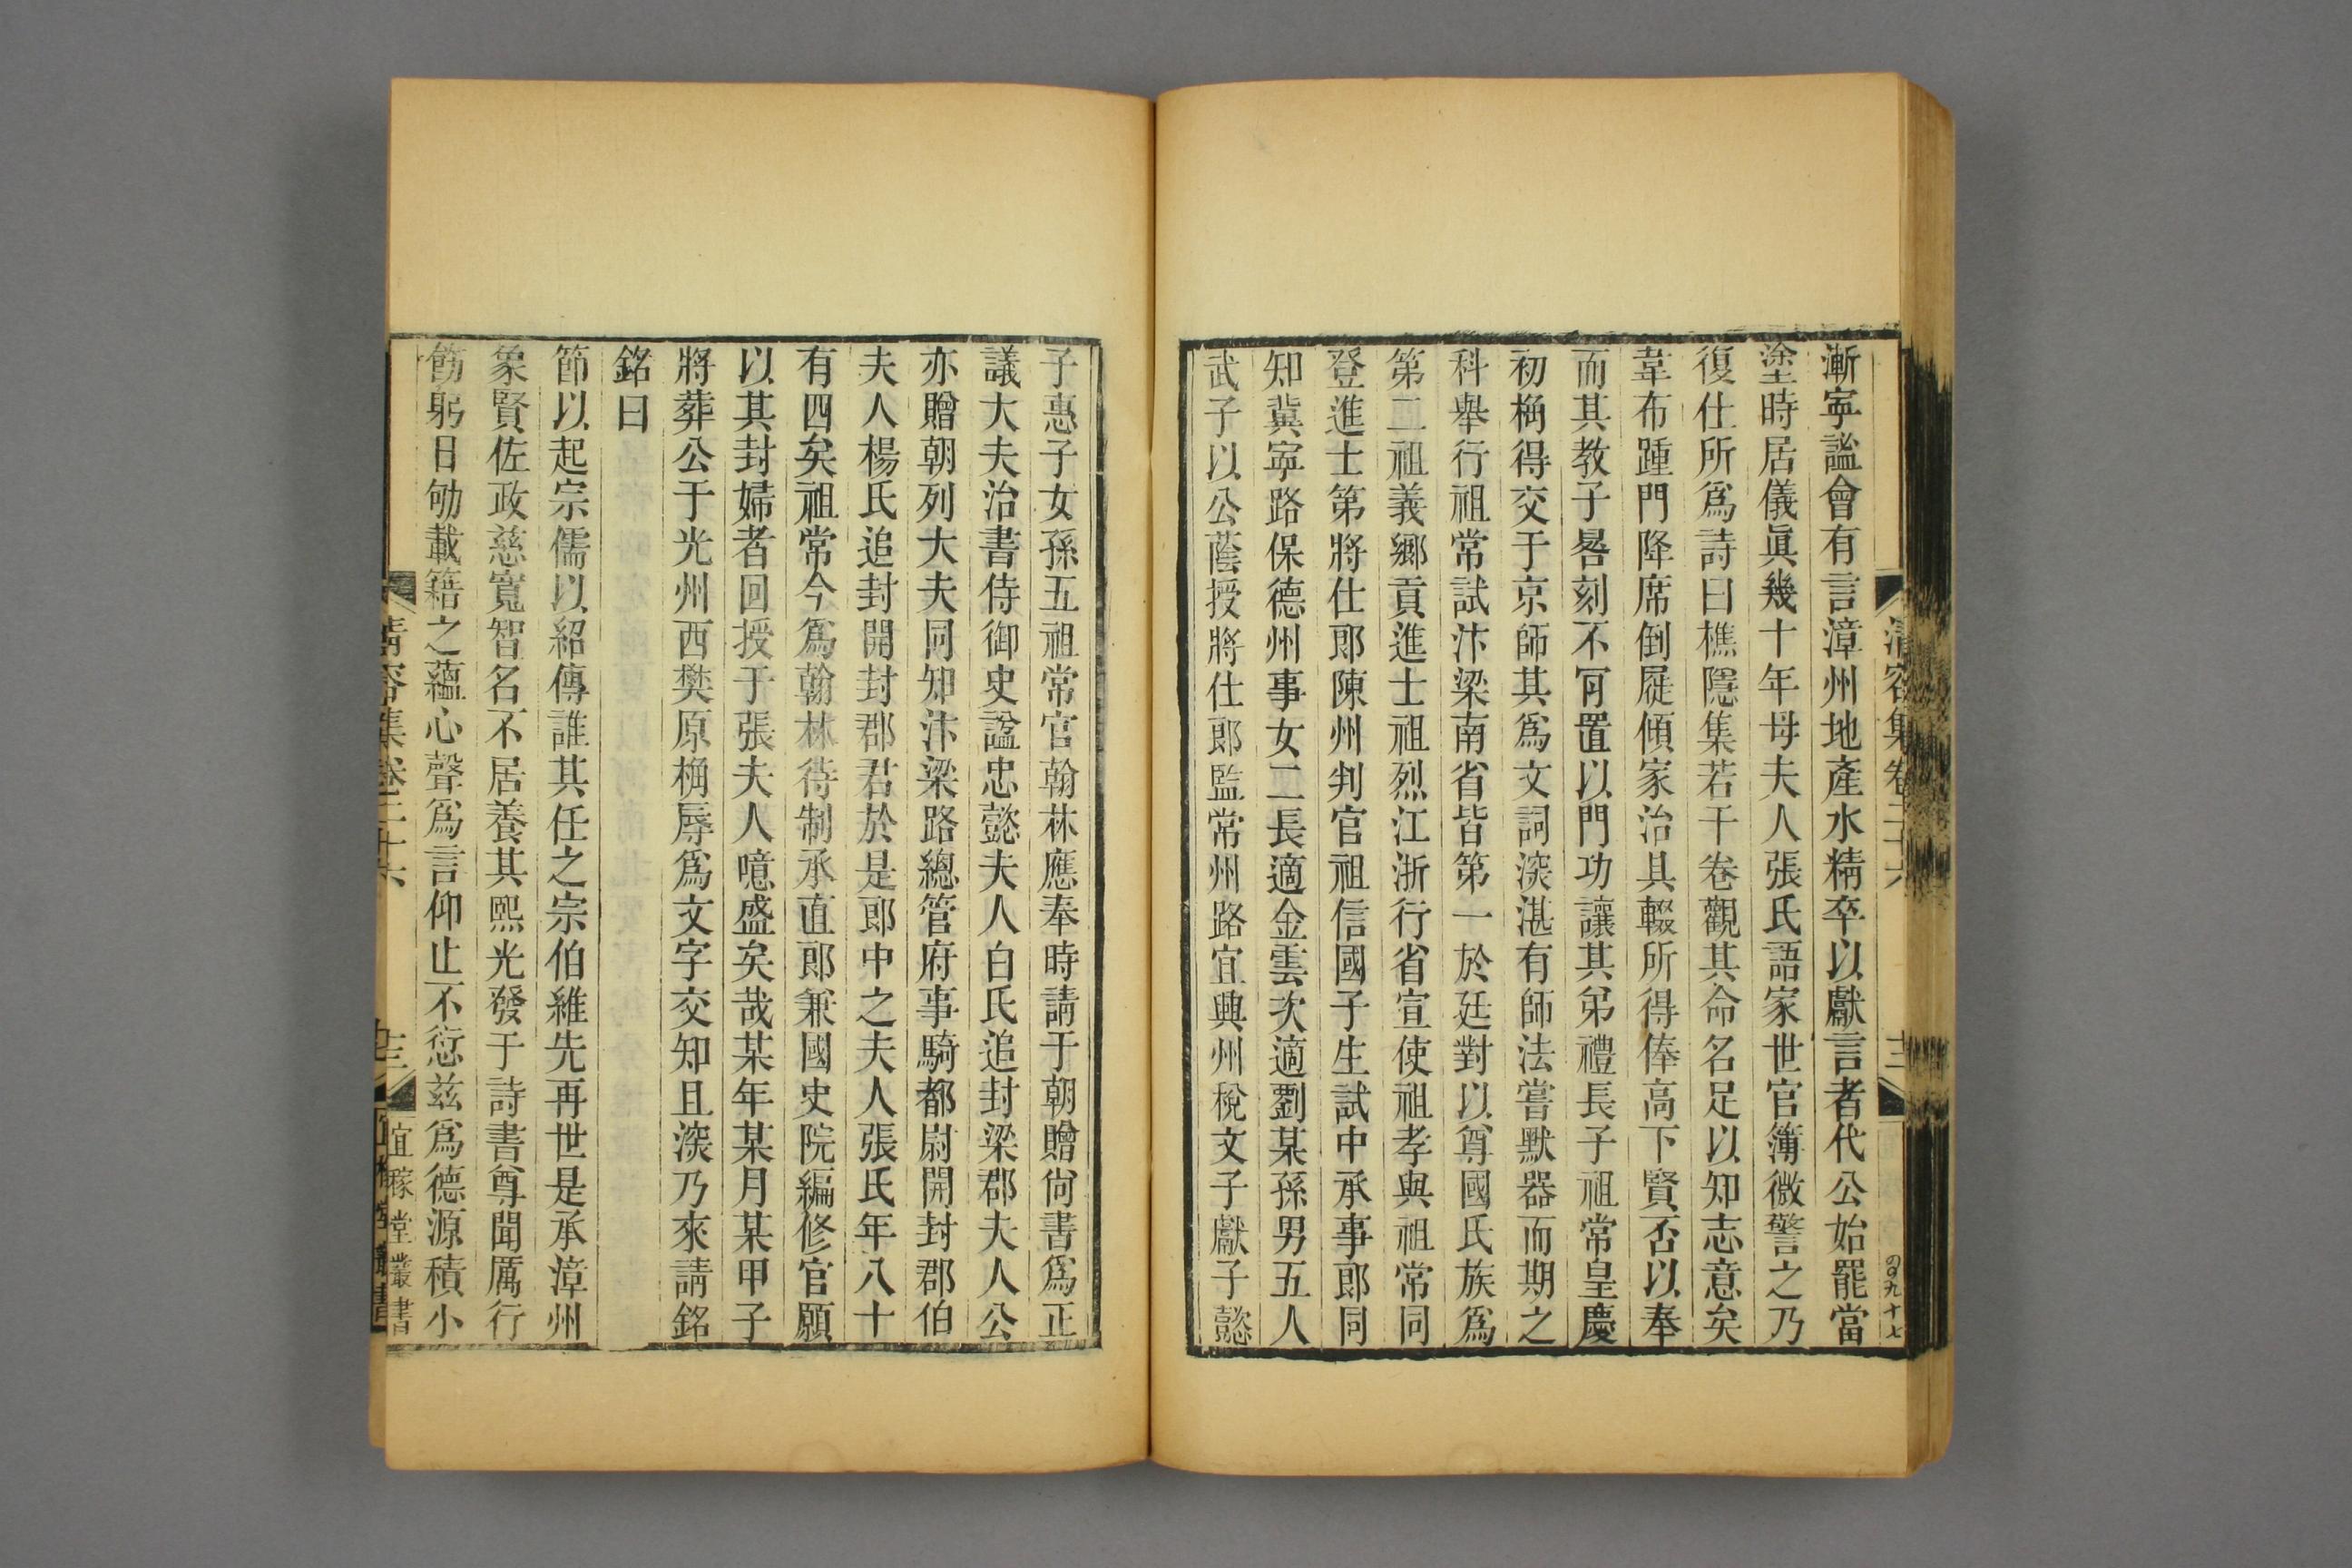 清容集卷二十六
十二
漸寕謐會有言漳州地產水精卒以獻言者代公始罷當
塗時居儀眞幾十年母夫人張氏語家世官簿微警之乃
復仕所爲詩曰樵隱集若干卷觀其命名足以知志意矣
韋布踵門降席倒屣傾家治具輟所得俸高下賢否以奉
而其教子晷刻不冝置以門功讓其弟禮長子祖常皇慶
初桷得交于京師其爲文詞湥湛有師法嘗默器而期之
科舉行祖常試汴梁南省皆第一於廷對以尊國氏族爲
第二祖義鄉貢進士祖烈江浙行省宣使祖孝與祖常同
登進士第將仕郎陳州判官祖信國子生試中承事郎同
知冀寕路保德州事女二長適金雲次適劉某孫男五人
武子以公蔭授將仕郎監常州路宜興州稅文子獻子懿
子惠子女孫五祖常官翰林應奉時請于朝贈尙書爲正
議大夫治書侍御史諡忠懿夫人白氏追封梁郡夫人公
亦贈朝列大夫同知汴梁路總管府事騎都尉開封郡伯
夫人楊氏追封開封郡君於是郎中之夫人張氏年八十
有四矣祖常今爲翰林待制承直郎兼國史院編修官願
以其封婦者回授于張夫人噫盛矣哉某年某月某甲子
將葬公于光州西樊原桷辱爲文字交知且湥乃來請銘
銘曰
節以起宗儒以紹傳誰其任之宗伯維先再世是承漳州
象賢佐政慈寬智名不居養其熙光發于詩書尊聞厲行
飭躬日劬載籍之蘊心聲爲言仰止不愆兹爲德源積小
清容集卷二十六
十三
宜稼堂叢書